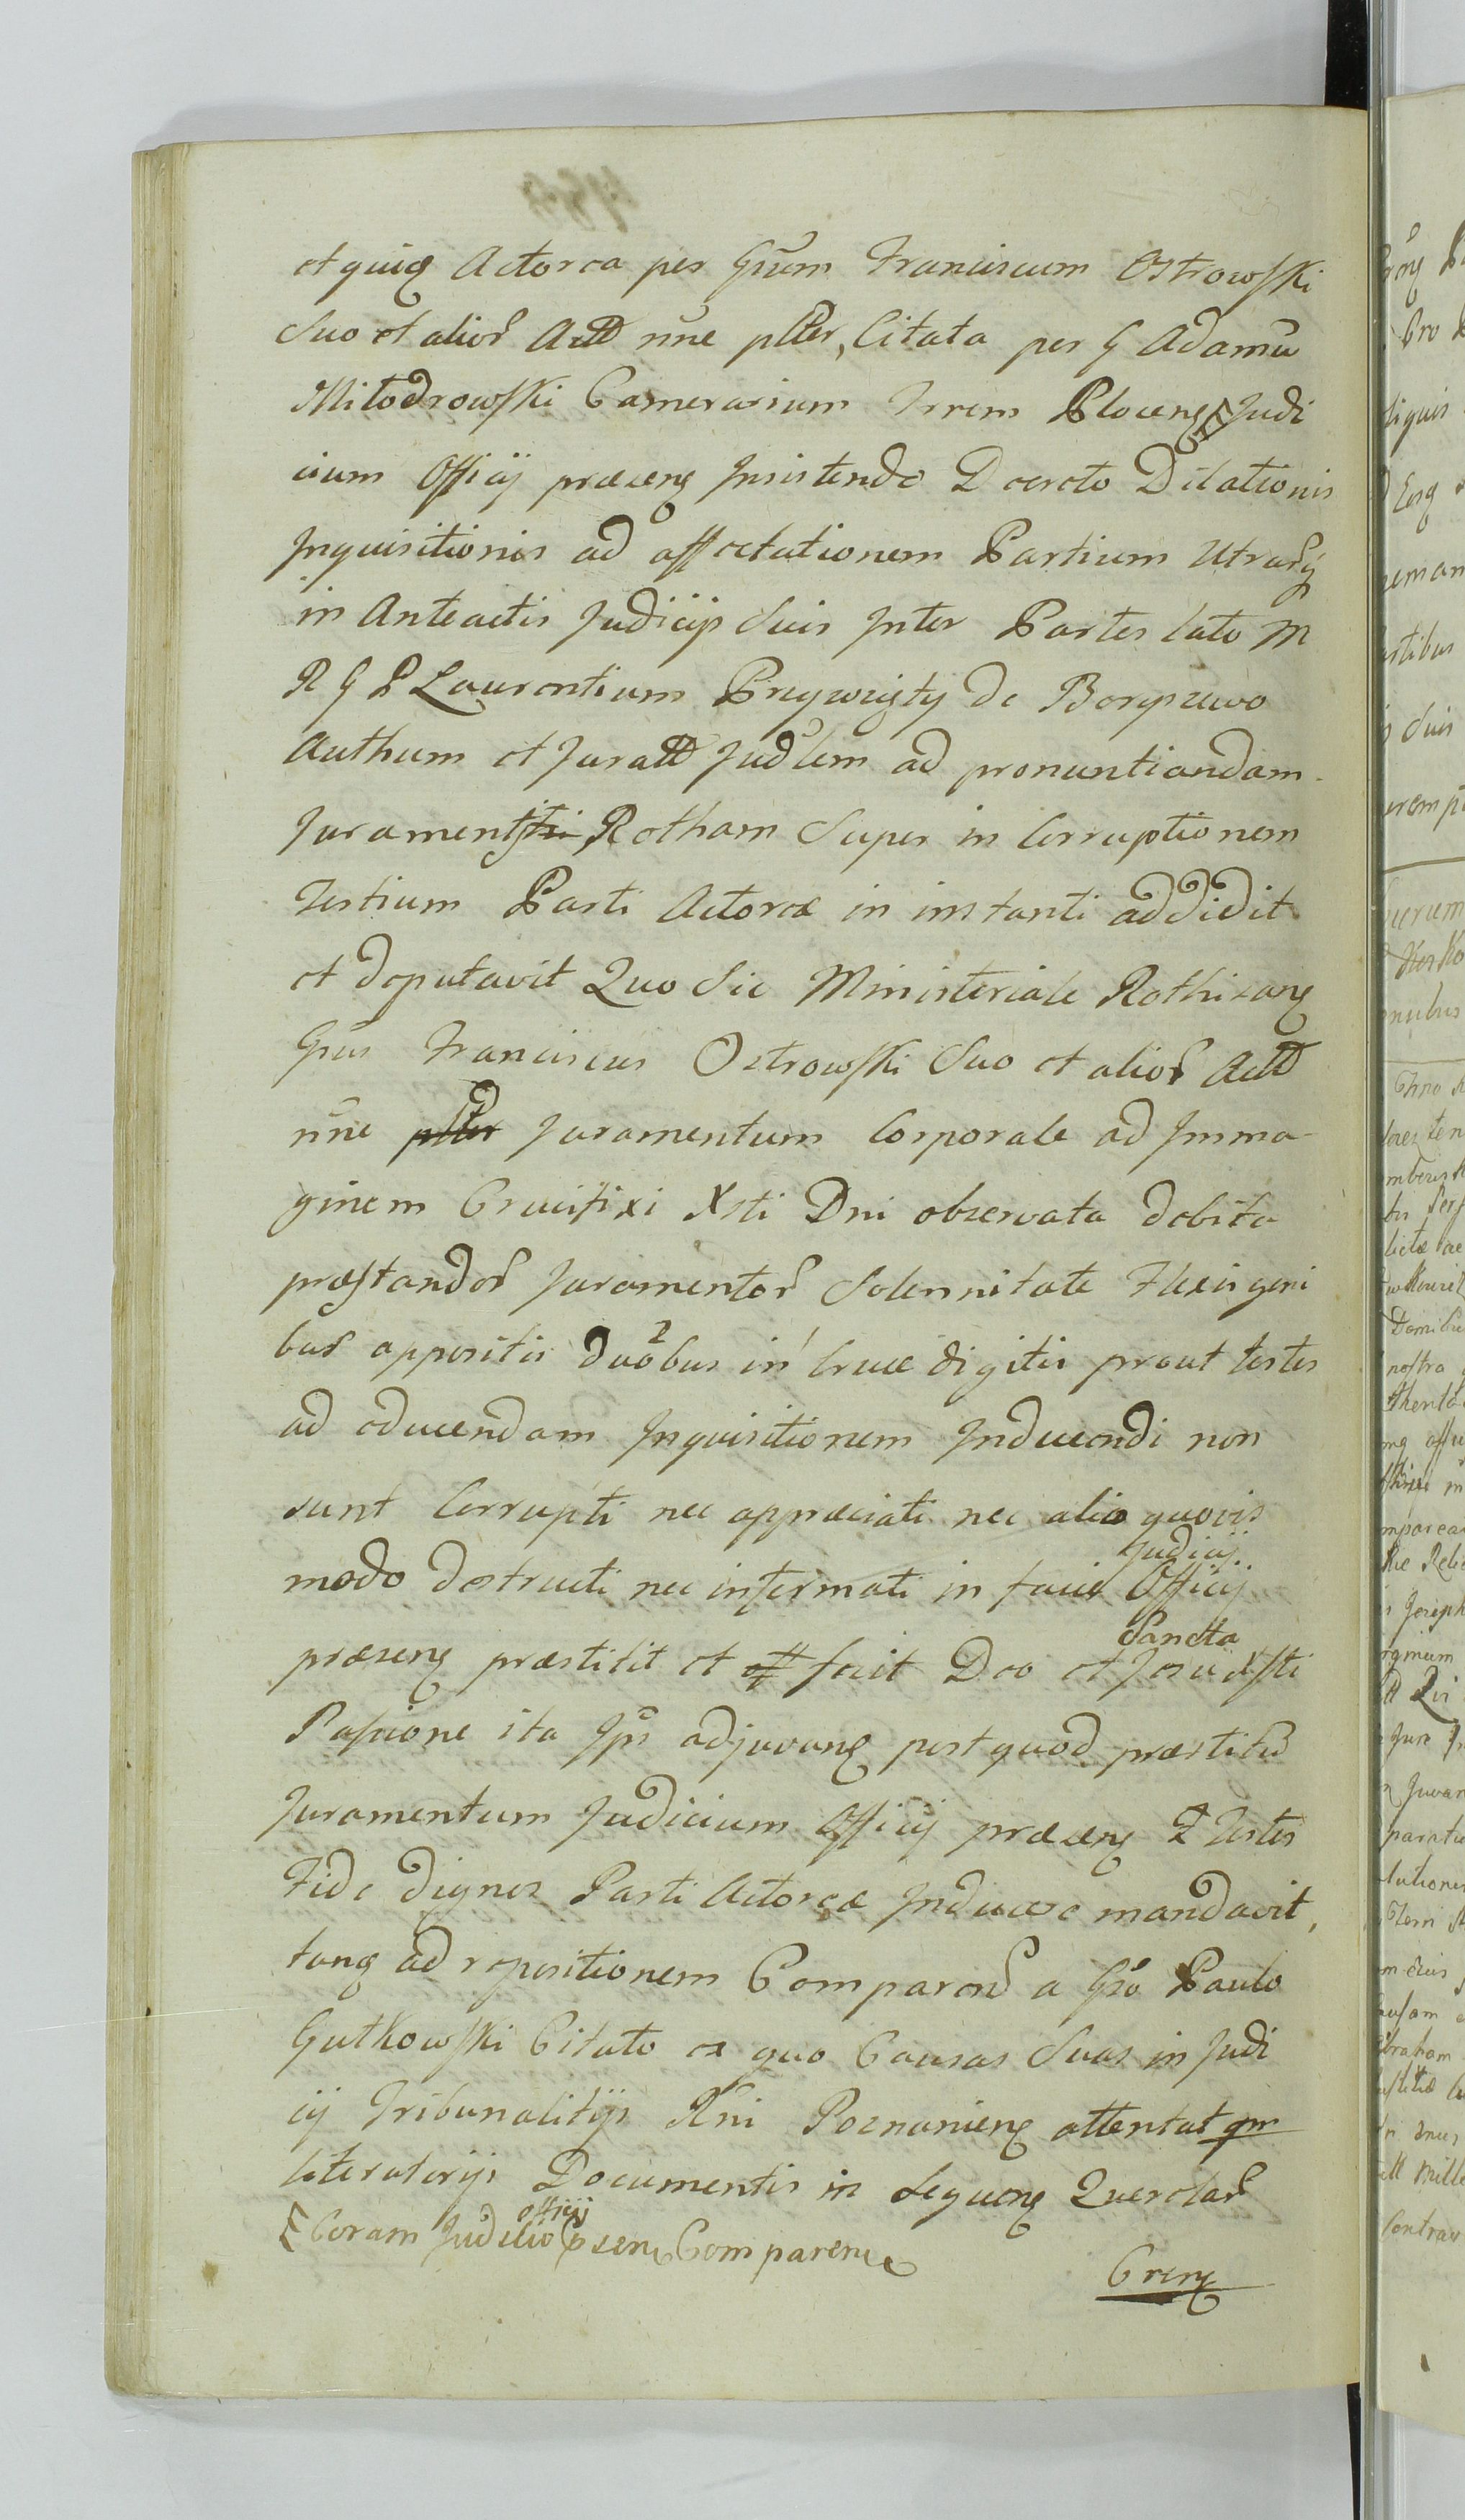 et quiq Actorea per Gsum Franciscum Ostrowski
Suo et alior Actt nne plter, Citata per G Adamu
Milodrowski Camerarium Trrem Plocens Judi
cium Officij præsens Insistendo Decreto Dilationis
Inquisitionis ad affectationem Partium Utrarq
in Anteactis Judicijs Suis Inter Partes lato M
R G P Laurentium Przywrzęty de Boryszewo
Authum et Juratt Judlem ad pronuntiandam
Juramenti Rotham Super in Corruptionem
Testium Parti Actoreæ in instanti addidit
et deputavit Quo Sic Ministeriale Rothizans
Gsus Franciscus Ostrowski Suo et alior Actt
nne plter Juramentum Corporale ad Imma-
ginem Crucifixi Xsti Dni observata debita
præstandor Juramentor Solennitate Flexis geni
bus appositis duobus in Cruce digitis prout testes
ad educendam Inquisitionem Inducendi non
sunt Corrupti nec appræciati nec alio quovis
modo destructi nec informati in facie Officij
Judicij
præsens præstitit et fecit Deo et Jesu Xsti
Sancta
Passione ita Ips adjuvans post quod præstitu
Juramentum Judicium Officij præsens 2 Testes
Fide dignos Parti Actoreæ Inducere mandavit,
tang ad repositionem Comparend a Gso Paulo
Gutkowski Citato ex quo Causas Suas in Judi
cij Tribunalitijs Rni Poznaniens attentat qm
literatorijs Documentis in Sequens Querelar
Coram Judicio officij psens Comparens
Crens